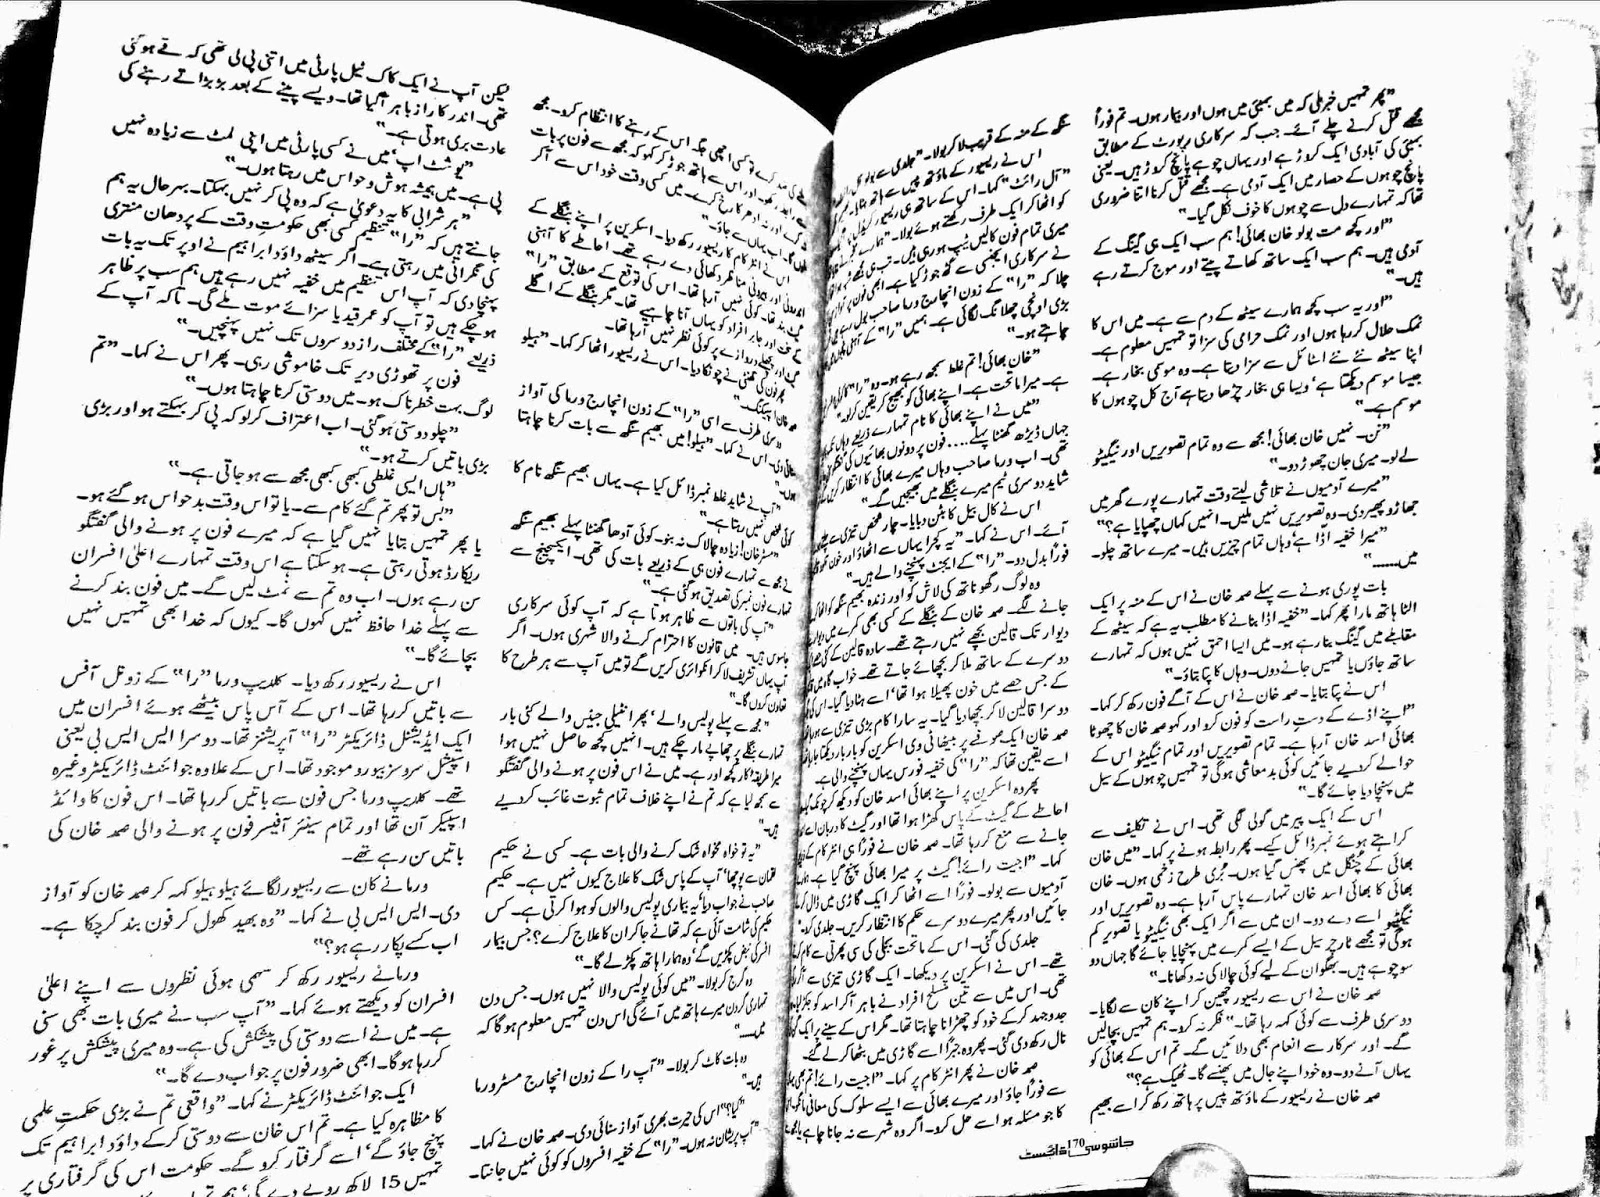 ”پھر تمہیں خبر ملی کہ میں بمبئی میں ہوں اور بیمار ہوں۔ تم فوراً
مجھے قتل کرنے چلے آئے۔ جب کہ سرکاری رپورٹ کے مطابق
بمبئی کی آبادی ایک کروڑ ہے اور یہاں چوہے پانچ کروڑ ہیں۔ یعنی
پانچ چوہوں کے حصار میں ایک آدمی ہے۔ مجھے قتل کرنا اتنا ضروری
تھا کہ تمہارے دل سے چوہوں کا خوف نکل گیا۔“
”اور کچھ مت بولو خان بھائی! ہم سب ایک ہی گینگ کے
آدمی ہیں۔ ہم سب ایک ساتھ کھاتے پیتے اور موج کرتے رہے
ہیں۔“
”اور یہ سب کچھ ہمارے سیٹھ کے دم سے ہے۔ میں اس کا
نمک حلال کر رہا ہوں اور نمک حرامی کی سزا تو تمہیں معلوم ہے۔
اپنا سیٹھ نئے نئے اسٹائل سے سزا دیتا ہے۔ وہ موسمی بخار ہے۔
جیسا موسم دیکھتا ہے ویسا ہی بخار چڑھا دیتا ہے آج کل چوہوں کا
موسم ہے۔“
”نن۔ نہیں خان بھائی! مجھ سے وہ تمام تصویریں اور نیگیٹو
لے لو۔ میری جان چھوڑ دو۔“
”میرے آدمیوں نے تلاشی لیتے وقت تمہارے پورے گھر میں
جھاڑو پھیر دی۔ وہ تصویریں نہیں ملیں۔ انہیں کہاں چھپایا ہے؟“
”میرا خفیہ اڈا ہے‘ وہاں تمام چیزیں ہیں۔ میرے ساتھ چلو۔
میں......“
بات پوری ہونے سے پہلے صمد خان نے اس کے منہ پر ایک
الٹا ہاتھ مارا پھر کہا۔ ”خفیہ اڈا بنانے کا مطلب یہ ہے کہ سیٹھ کے
مقابلے میں گینگ بنا رہے ہو۔ میں ایسا احمق نہیں ہوں کہ تمہارے
ساتھ جاؤں یا تمہیں جانے دوں۔ وہاں کا پتا بتاؤ۔“
اس نے پتا بتایا۔ صمد خان نے اس کے آگے فون رکھ کر کہا۔
”اپنے اڈے کے دستِ راست کو فون کرو اور کہو صمد خان کا چھوٹا
بھائی اسد خان آرہا ہے۔ تمام تصویریں اور تمام نیگیٹو اس کے
حوالے کر دیے جائیں کوئی بدمعاشی ہوگی تو تمہیں چوہوں کے سیل
میں پہنچا دیا جائے گا۔“
اس کے ایک پیر میں گولی لگی تھی۔ اس نے تکلیف سے
کراہتے ہوئے نمبر ڈائل کیے۔ پھر رابطہ ہونے پر کہا۔ ”میں خان
بھائی کے چنگل میں پھنس گیا ہوں۔ بری طرح زخمی ہوں۔ خان
بھائی کا بھائی اسد خان تمہارے پاس آرہا ہے۔ وہ تصویریں اور
نیگیٹو اسے دے دو۔ ان میں سے اگر ایک بھی نیگیٹو یا تصویر کم
ہوگی تو مجھے ٹارچر سیل کے ایسے کمرے میں پہنچایا جائے گا جہاں دو
سو چوہے ہیں۔ بھگوان کے لیے کوئی چالاکی نہ دکھانا۔“
صمد خان نے اس سے ریسیور چھین کر اپنے کان سے لگایا۔
دوسری طرف سے کوئی کہہ رہا تھا۔ ”فکر نہ کرو۔ ہم تمہیں بچالیں
گے۔ اور سرکار سے انعام بھی دلائیں گے۔ تم اس کے بھائی کو
یہاں آنے دو۔ وہ خود اپنے جال میں پھنسے گا۔ ٹھیک ہے؟“
صمد خان نے ریسیور کے ماؤتھ پیس پر ہاتھ رکھ کر اسے بھیم
سنگھ کے منہ کے قریب لا کر بولا۔ ”جلدی سے
اس نے ریسیور کے ماؤتھ پیس سے ہاتھ ہٹایا۔
”آل رائٹ“ کہا۔ اس کے ساتھ ہی ریسیور
کو اٹھا کر ایک طرف رکھتے ہوئے بولا۔ ”ہمارے
میری تمام فون کالیں ٹیپ ہو رہی ہیں۔
نے سرکاری ایجنسی سے گٹھ جوڑ کیا ہے۔ ابھی فون پر
چلا کہ ”را“ کے زون انچارج ورما صاحب بول رہے
بڑی اونچی چھلانگ لگائی ہے۔ ہمیں ”را“ کے
چاہتے ہو۔“
”خان بھائی! تم غلط سمجھ رہے ہو۔ وہ ”را“
ہے۔ میرا ماتحت ہے۔ اپنے بھائی کو بھیج کر یقین کرلو۔“
”میں نے اپنے بھائی کا نام تمہارے ذریعے وہاں
جہاں ڈیڑھ گھنٹا پہلے.... فون پر دونوں بھائیوں کی
تھی۔ اب ورما صاحب وہاں میرے بھائی کا انتظار
شاید دوسری ٹیم میرے بنگلے میں بھیجیں گے۔“
اس نے کال بیل کا بٹن دبایا۔ چار شخص تیزی سے
آئے۔ اس نے کہا۔ ”یہ کچرا یہاں سے اٹھاؤ اور خون
فوراً بدل دو۔ ”را“ کے ایجنٹ پہنچنے والے ہیں۔“
وہ لوگ رگھو ناتھ کی لاش کو اور زندہ بھیم سنگھ کو اٹھا کر
جانے لگے۔ صمد خان کے بنگلے کے کسی بھی کمرے میں دیوار
دیوار تک قالین بچھے نہیں رہتے تھے۔ سادہ قالین کے
دوسرے کے ساتھ ملا کر بچھائے جاتے تھے۔ خواب گاہ میں
کے جس حصے میں خون پھیلا ہوا تھا‘ اسے ہٹا دیا گیا۔ اس کی
دوسرا قالین لا کر بچھا دیا گیا۔ یہ سارا کام بڑی تیزی سے
صمد خان ایک صوفے پر بیٹھا ٹی وی اسکرین کو بار بار دیکھتا
اسے یقین تھا کہ ”را“ کی خفیہ فورس یہاں پہنچنے والی ہے۔
پھر وہ اسکرین پر اپنے بھائی اسد خان کو دیکھ کر
احاطے کے گیٹ کے پاس کھڑا ہوا تھا اور گیٹ کا دربان اسے
جانے سے منع کر رہا تھا۔ صمد خان نے فوراً ہی انٹر کام کے
کہا۔ ”اجیت رائے! گیٹ پر میرا بھائی پہنچ گیا ہے۔
آدمیوں سے بولو۔ فوراً اسے اٹھا کر ایک گاڑی میں ڈال کر
جائیں اور پھر میرے دوسرے حکم کا انتظار کریں۔ جلدی کرو۔“
جلدی کی گئی۔ اس کے ماتحت بجلی کی سی پھرتی سے کام
تھے۔ اس نے اسکرین پر دیکھا۔ ایک گاڑی تیزی سے
تھی۔ اس میں سے تین مسلح افراد نے باہر آکر اسد کو جکڑ لیا۔
جدوجہد کر کے خود کو چھڑانا چاہتا تھا۔ مگر اس کے سینے پر ایک
نال رکھ دی گئی۔ پھر وہ جبراً اسے گاڑی میں بٹھا کر لے گئے۔
صمد خان نے پھر انٹر کام پر کہا۔ ”اجیت رائے! تم بھی
سے فوراً جاؤ اور میرے بھائی سے ایسے سلوک کی معافی مانگو
کا جو مسئلہ ہو اسے حل کرو۔ اگر وہ شہر سے نہ جانا چاہے
جاسوسی ڈائجسٹ 170
تو کسی اچھی جگہ اس کے رہنے کا انتظام کرو۔ مجھ
سے رابطہ رکھو۔ اور اس سے ہاتھ جوڑ کر کہو کہ مجھ سے فون پر بات
نہ کرے اور نہ ادھر کا رخ کرے۔ میں کسی وقت خود اس سے آکر
ملوں گا۔ اب یہاں سے جاؤ۔“
اس نے انٹر کام کا ریسیور رکھ دیا۔ اسکرین پر اپنے بنگلے کے
اندرونی اور بیرونی مناظر دکھائی دے رہے تھے۔ احاطے کا آہنی
گیٹ بند تھا۔ کوئی نہیں آرہا تھا۔ اس کی توقع کے مطابق ”را“
کے سخت اور جابر افراد کو یہاں آنا چاہیے تھا۔ مگر بنگلے کے اگلے
اور پچھلے دروازے پر کوئی نظر نہیں آرہا تھا۔
پھر فون کی گھنٹی نے چونکا دیا۔ اس نے ریسیور اٹھا کر کہا۔ ”ہیلو
صمد خان اسپیکنگ۔“
دوسری طرف سے اسی ”را“ کے زون انچارج ورما کی آواز
سنائی دی۔ اس نے کہا۔ ”ہیلو! میں بھیم سنگھ سے بات کرنا چاہتا
ہوں۔“
”آپ نے شاید غلط نمبر ڈائل کیا ہے۔ یہاں بھیم سنگھ نام کا
کوئی شخص نہیں رہتا ہے۔“
”مسٹر خان! زیادہ چالاک نہ بنو۔ کوئی آدھا گھنٹا پہلے بھیم سنگھ
نے مجھ سے تمہارے فون ہی کے ذریعے بات کی تھی۔ ایکسچینج سے
تمہارے فون نمبر کی تصدیق ہوگئی ہے۔“
”آپ کی باتوں سے ظاہر ہوتا ہے کہ آپ کوئی سرکاری
جاسوس ہیں۔ میں قانون کا احترام کرنے والا شہری ہوں۔ اگر
آپ یہاں تشریف لا کر انکوائری کریں گے تو میں آپ سے ہر طرح کا
تعاون کروں گا۔“
”مجھ سے پہلے پولیس والے‘ پھر انٹیلی جینس والے کئی بار
تمہارے بنگلے پر چھاپے مار چکے ہیں۔ انہیں کچھ حاصل نہیں ہوا
میرا طریقہ کار کچھ اور ہے۔ میں نے اس فون پر ہونے والی گفتگو
سے سمجھ لیا ہے کہ تم نے اپنے خلاف تمام ثبوت غائب کر دیے
ہیں۔“
”یہ تو خواہ مخواہ شک کرنے والی بات ہے۔ کسی نے حکیم
لقمان سے پوچھا‘ آپ کے پاس شک کا علاج کیوں نہیں ہے۔ حکیم
صاحب نے جواب دیا‘ یہ بیماری پولیس والوں کو ہوا کرتی ہے۔ کس
حکیم کی شامت آئی ہے کہ تھانے جا کر ان کا علاج کرے؟ جس بیمار
افسر کی نبض پکڑیں گے‘ وہ ہمارا ہاتھ پکڑ لے گا۔“
وہ گرج کر بولا۔ ”میں کوئی پولیس والا نہیں ہوں۔ جس دن
تمہاری گردن میرے ہاتھ میں آئے گی اس دن تمہیں معلوم ہوگا کہ
میں....“
وہ بات کاٹ کر بولا۔ ”آپ را کے زون انچارج مسٹر ورما
ہیں۔“
”کیا؟“ اس کی حیرت بھری آواز سنائی دی۔ صمد خان نے کہا۔
”آپ پریشان نہ ہوں۔ ”را“ کے خفیہ افسروں کو کوئی نہیں جانتا۔
لیکن آپ نے ایک کاک ٹیل پارٹی میں اتنی پی لی تھی کہ قے ہوگئی
تھی۔ اندر کا راز باہر آگیا تھا۔ ویسے پینے کے بعد بڑبڑاتے رہنے کی
عادت بری ہوتی ہے۔“
”یو شٹ اپ‘ میں نے کسی پارٹی میں اپنی لمٹ سے زیادہ نہیں
پی ہے۔ میں ہمیشہ ہوش و حواس میں رہتا ہوں۔“
”ہر شرابی کا یہ دعویٰ ہے کہ وہ پی کر نہیں بہکتا۔ بہرحال یہ ہم
جانتے ہیں کہ ”را“ تنظیم کسی بھی حکومتِ وقت کے پردھان منتری
کی نگرانی میں رہتی ہے۔ اگر سیٹھ داؤد ابراہیم نے اوپر تک یہ بات
پہنچادی کہ آپ اس تنظیم میں خفیہ نہیں رہے ہیں ہم سب پر ظاہر
ہوچکے ہیں تو آپ کو عمر قید یا سزائے موت ملے گی۔ تاکہ آپ کے
ذریعے ”را“ کے مختلف راز دوسروں تک نہیں پہنچیں۔“
فون پر تھوڑی دیر تک خاموشی رہی۔ پھر اس نے کہا۔ ”تم
لوگ بہت خطرناک ہو۔ میں دوستی کرنا چاہتا ہوں۔“
”چلو دوستی ہوگئی۔ اب اعتراف کرلو کہ پی کر بہکتے ہو اور بڑی
بڑی باتیں کرتے ہو۔“
”ہاں ایسی غلطی کبھی کبھی مجھ سے ہو جاتی ہے۔“
”بس تو پھر تم گئے کام سے۔ یا تو اس وقت بدحواس ہو گئے ہو۔
یا پھر تمہیں بتایا نہیں گیا ہے کہ میرے فون پر ہونے والی گفتگو
ریکارڈ ہوتی رہتی ہے۔ ہو سکتا ہے اس وقت تمہارے اعلیٰ افسران
سن رہے ہوں۔ اب وہ تم سے نمٹ لیں گے۔ میں فون بند کرنے
سے پہلے خدا حافظ نہیں کہوں گا۔ کیوں کہ خدا بھی تمہیں نہیں
بچائے گا۔“
اس نے ریسیور رکھ دیا۔ کلدیپ ورما ”را“ کے زونل آفس
سے باتیں کر رہا تھا۔ اس کے آس پاس بیٹھے ہوئے افسران میں
ایک ایڈیشنل ڈائریکٹر ”را“ آپریشنز تھا۔ دوسرا ایس ایس بی یعنی
اسپیشل سروسز بیورو موجود تھا۔ اس کے علاوہ جوائنٹ ڈائریکٹر وغیرہ
تھے۔ کلدیپ ورما جس فون سے باتیں کر رہا تھا۔ اس فون کا وائڈ
اسپیکر آن تھا اور تمام سینئر آفیسر فون پر ہونے والی صمد خان کی
باتیں سن رہے تھے۔
ورما نے کان سے ریسیور لگائے ہیلو ہیلو کہہ کر صمد خان کو آواز
دی۔ ایس ایس بی نے کہا۔ ”وہ بھید کھول کر فون بند کرچکا ہے۔
اب کسے پکار رہے ہو؟“
ورما نے ریسیور رکھ کر سہمی ہوئی نظروں سے اپنے اعلیٰ
افسران کو دیکھتے ہوئے کہا۔ ”آپ سب نے میری بات بھی سنی
ہے۔ میں نے اسے دوستی کی پیشکش کی ہے۔ وہ میری پیشکش پر غور
کر رہا ہوگا۔ ابھی ضرور فون پر جواب دے گا۔“
ایک جوائنٹ ڈائریکٹر نے کہا۔ ”واقعی تم نے بڑی حکمتِ عملی
کا مظاہرہ کیا ہے۔ تم اس خان سے دوستی کر کے داؤد ابراہیم تک
پہنچ جاؤ گے‘ اسے گرفتار کرو گے۔ حکومت اس کی گرفتاری پر
تمہیں 15 لاکھ روپے دے گی‘